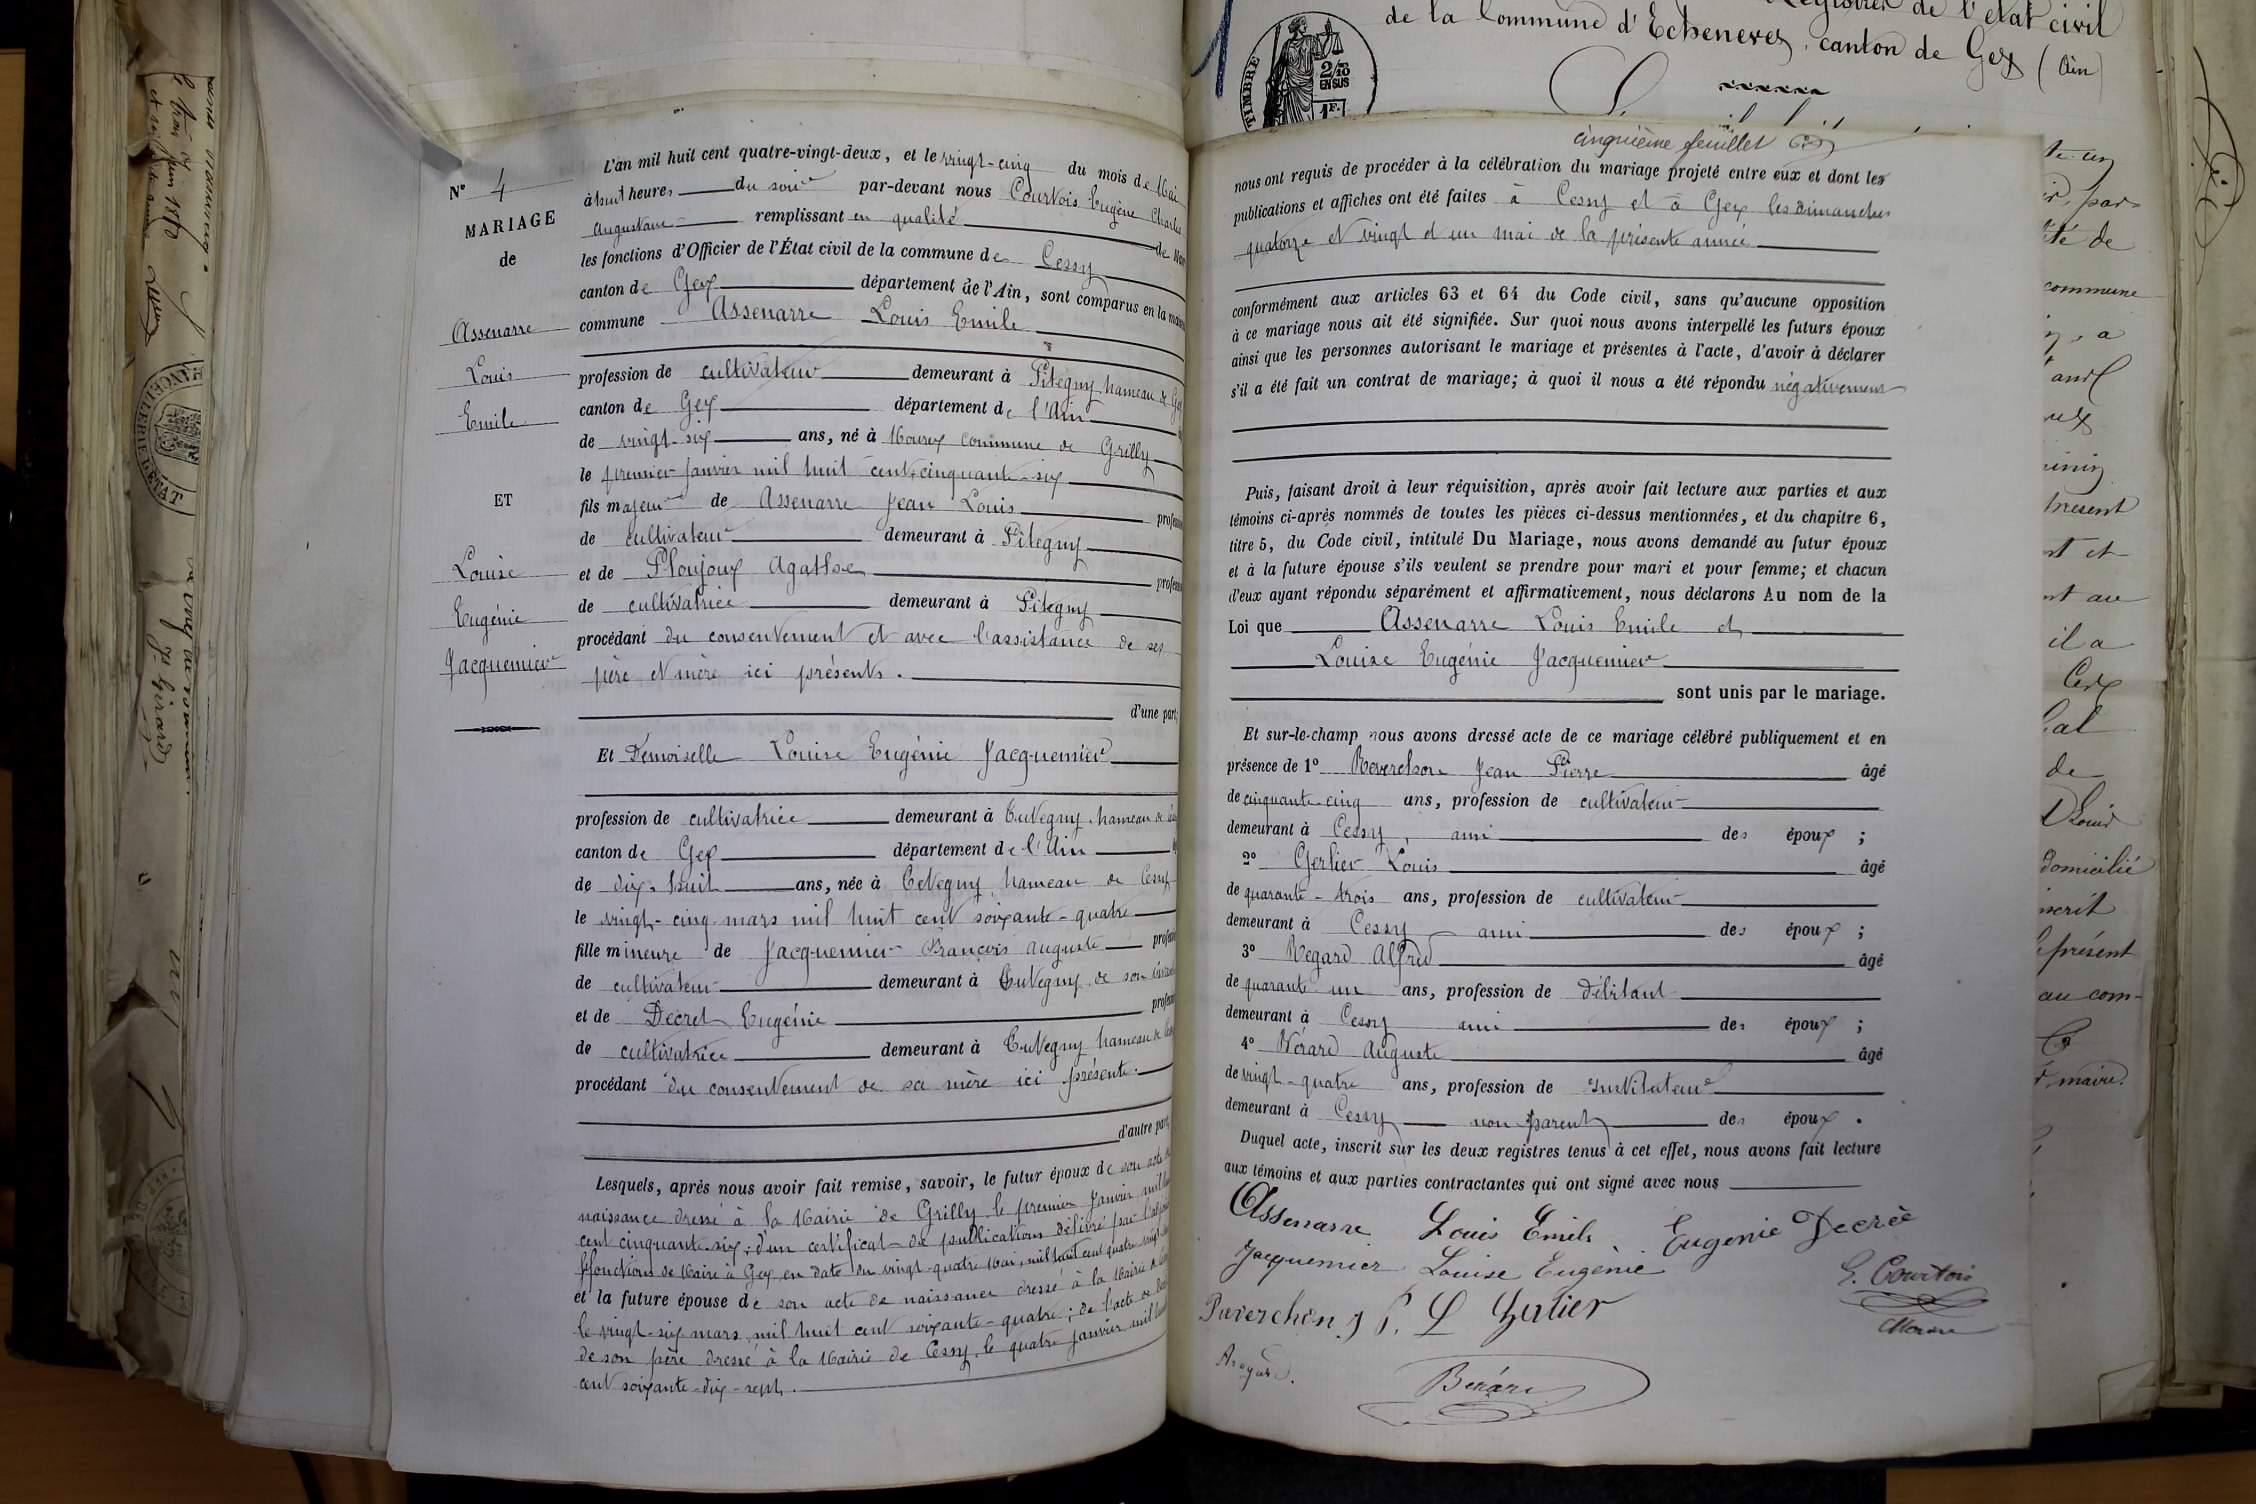 N° 4
MARIAGE
de
Assenarre
Louis
Emile
ET
Louise
Eugénie
Jacquemier
L'an mil huit cent quatre-vingt-deux, et le vingt-cinq du mois de Mai
à huit heures du soir par-devant nous Courtois Eugène Charles
Augustave remplissant en qualité de
les fonctions d'Officier de l'État civil de la commune de Cessy
canton de Gex département de l'Ain, sont comparus en la
commune Assenarre Louis Emile
profession de cultivateur demeurant à Pitegny hameau de Gex
canton de Gex département de l'Ain
de vingt-six ans, né à Mourex commune de Grilly
le premier janvier mil huit cent cinquante-six
fils majeur de Assenarre Jean Louis
de cultivateur demeurant à Pitegny
et de Ploujoux Agathe
de cultivatrice demeurant à Pitegny
procédant du consentement et avec l'assistance de ses
père et mère ici présents.
d'une part;
Et Demoiselle Louise Eugénie Jacquemier
profession de cultivatrice demeurant à Tutegny hameau de
canton de Gex département de l'Ain
de dix-huit ans, née à Tutegny hameau de Cessy
le vingt-cinq mars mil huit cent soixante-quatre
fille mineure de Jacquemier François Auguste
de cultivateur demeurant à Tutegny de son
et de Decret Eugénie
de cultivatrice demeurant à Tutegny hameau de
procédant du consentement de sa mère ici présente.
d'autre part,
Lesquels, après nous avoir fait remise, savoir, le futur époux de son acte de
naissance dressé à la Mairie de Grilly le premier Janvier mil
cent cinquante-six; d'un certificat de publications délivré par
fonctions de Maire à Gex en date du vingt-quatre Mai, mil huit cent quatre vingt
et la future épouse de son acte de naissance dressé à la Mairie
le vingt-six mars mil huit cent soixante-quatre; de l'acte de
de son père dressé à la Mairie de Cessy le quatre janvier mil
cent soixante-dix-sept.
Registres de l'état civil
de la Commune d'Echenevex, canton de Gex (Ain)
TIMBRE
2/10
EN SUS
1F.
cinquième feuillet
nous ont requis de procéder à la célébration du mariage projeté entre eux et dont les
publications et affiches ont été faites à Cessy et à Gex les Dimanches
quatorze et vingt et un mai de la présente année
conformément aux articles 63 et 64 du Code civil, sans qu'aucune opposition
à ce mariage nous ait été signifiée. Sur quoi nous avons interpellé les futurs époux
ainsi que les personnes autorisant le mariage et présentes à l'acte, d'avoir à déclarer
s'il a été fait un contrat de mariage; à quoi il nous a été répondu négativement
Puis, faisant droit à leur réquisition, après avoir fait lecture aux parties et aux
témoins ci-après nommés de toutes les pièces ci-dessus mentionnées, et du chapitre 6,
titre 5, du Code civil, intitulé Du Mariage, nous avons demandé au futur époux
et à la future épouse s'ils veulent se prendre pour mari et pour femme; et chacun
d'eux ayant répondu séparément et affirmativement, nous déclarons Au nom de la
Loi que Assenarre Louis Emile et
Louise Eugénie Jacquemier
sont unis par le mariage.
Et sur-le-champ nous avons dressé acte de ce mariage célébré publiquement et en
présence de 1° Reverchon Jean Pierre âgé
de cinquante-cinq ans, profession de cultivateur
demeurant à Cessy, ami des époux ;
2° Gerlier Louis âgé
de quarante-trois ans, profession de cultivateur
demeurant à Cessy ami des époux ;
3° Regard Alfred âgé
de quarante un ans, profession de débitant
demeurant à Cessy ami des époux ;
4° Bérard Auguste âgé
de vingt-quatre ans, profession de instituteur
demeurant à Cessy non parent des époux .
Duquel acte, inscrit sur les deux registres tenus à cet effet, nous avons fait lecture
aux témoins et aux parties contractantes qui ont signé avec nous
Assenarre Louis Emile Eugenie Decrèe
Jacquemier Louise Eugénie
E. Courtois
Reverchon J P. L Gerlier
Bérard
commune
présent
il a
de
domicilié
présent
au com-
maire.